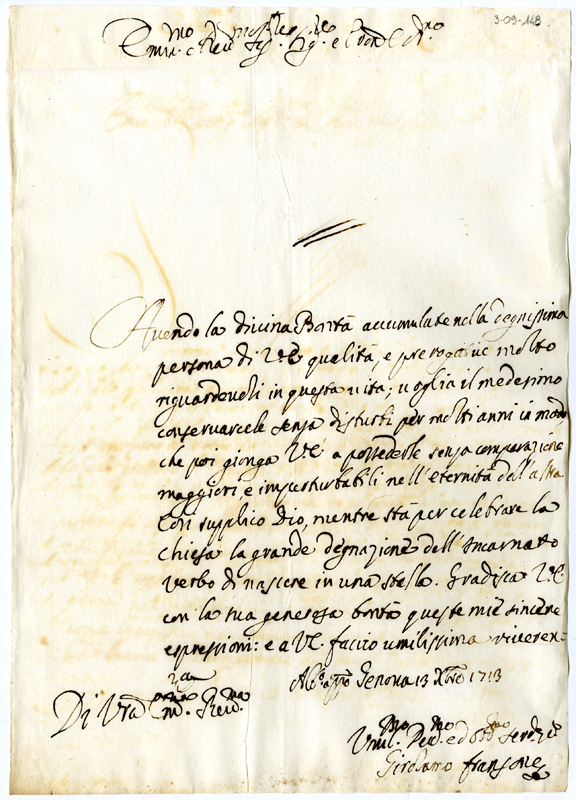 3-09-148
Em.mo e Rev.mo Sig.re Sig.re e Pdron Col.mo
Auendo la diuina Bontà accumulate nella degnissima
persona di V.E. qualità, e prerogatiue molto
riguardeuoli in questa uita; uoglia il medesimo
conseruarcele senza disturbi per molti anni in modo
che poi gionga V.E. a possederle senza comparazione
maggiori, e imperturbabili nell'eternità dell'altra
Così supplico Dio, mentre stà per celebrare la
chiesa la grande degnazione dell'Incarnato
verbo di nascere in una stalla. Gradisca V.E.
con la sua generosa bontà queste mie sincere
espressioni: e a V.E. faccio umilissima riueren=
za
Genova 13 Xbre 1713
Di V.ra Em.za Reu.ma
Vmil. Deu. ed Obb. Serd.re
Girolamo Fransone